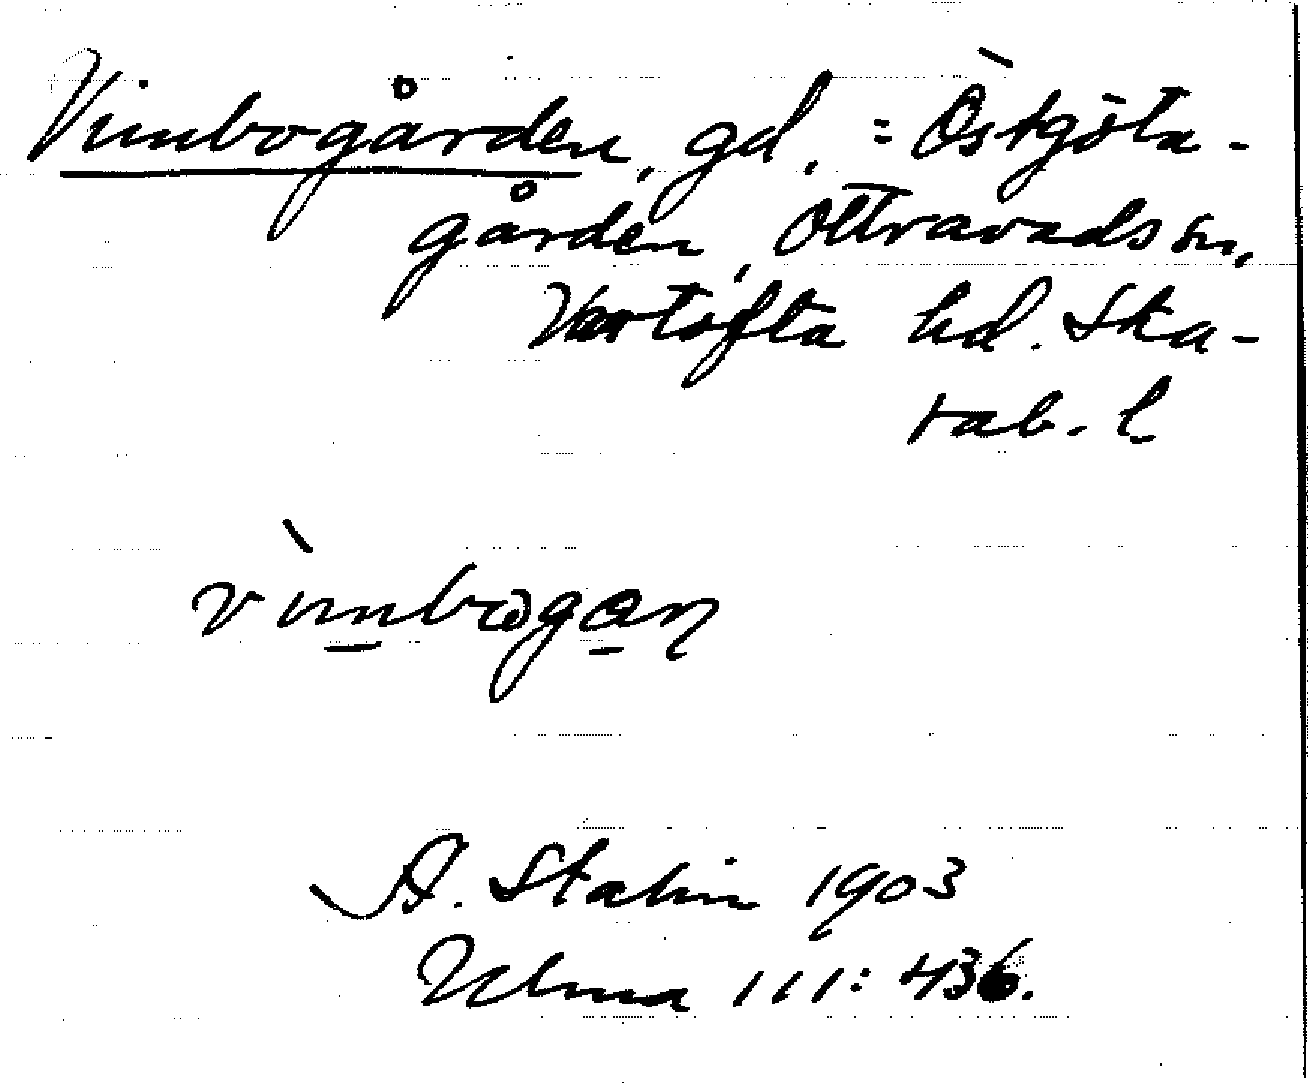 Vimbogården, gd. = Östgöta-
gården, Ottravads sn,
Vartofta hd. Ska-
rab. l.
vimbogan
A. Stalin 1903
Ulma 111: 436.